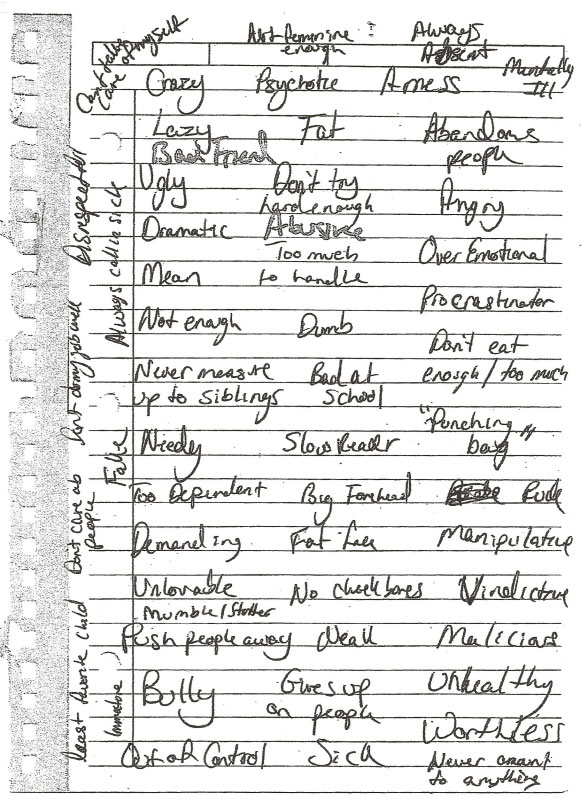 Can't take care of myself
Not Feminine enough
Always Absent
Crazy Psychotic A mess Mentally Ill
Lazy Fat Abandons people
Bad Friend
Ugly Don't try hard enough Angry
Dramatic Abusive
Too much to handle Over Emotional
Mean
Procrastinator
Not enough Dumb
Don't eat enough / too much
Never measure up to siblings
Bad at school
"Punching bag"
Needy Slow Reader
Too Dependent Big Forehead Rude
Demanding Fat Manipulative
Unlovable No cheek bones Vindictive
Mumble / Stutter
Push people away Weak Malicious
Bully Gives up on people Unhealthy
Worthless
Out of Control Sick Never amount to anything
Disrespectful
Always call in sick
Don't do my job well
Fake
Don't care ab people
Least favorite child